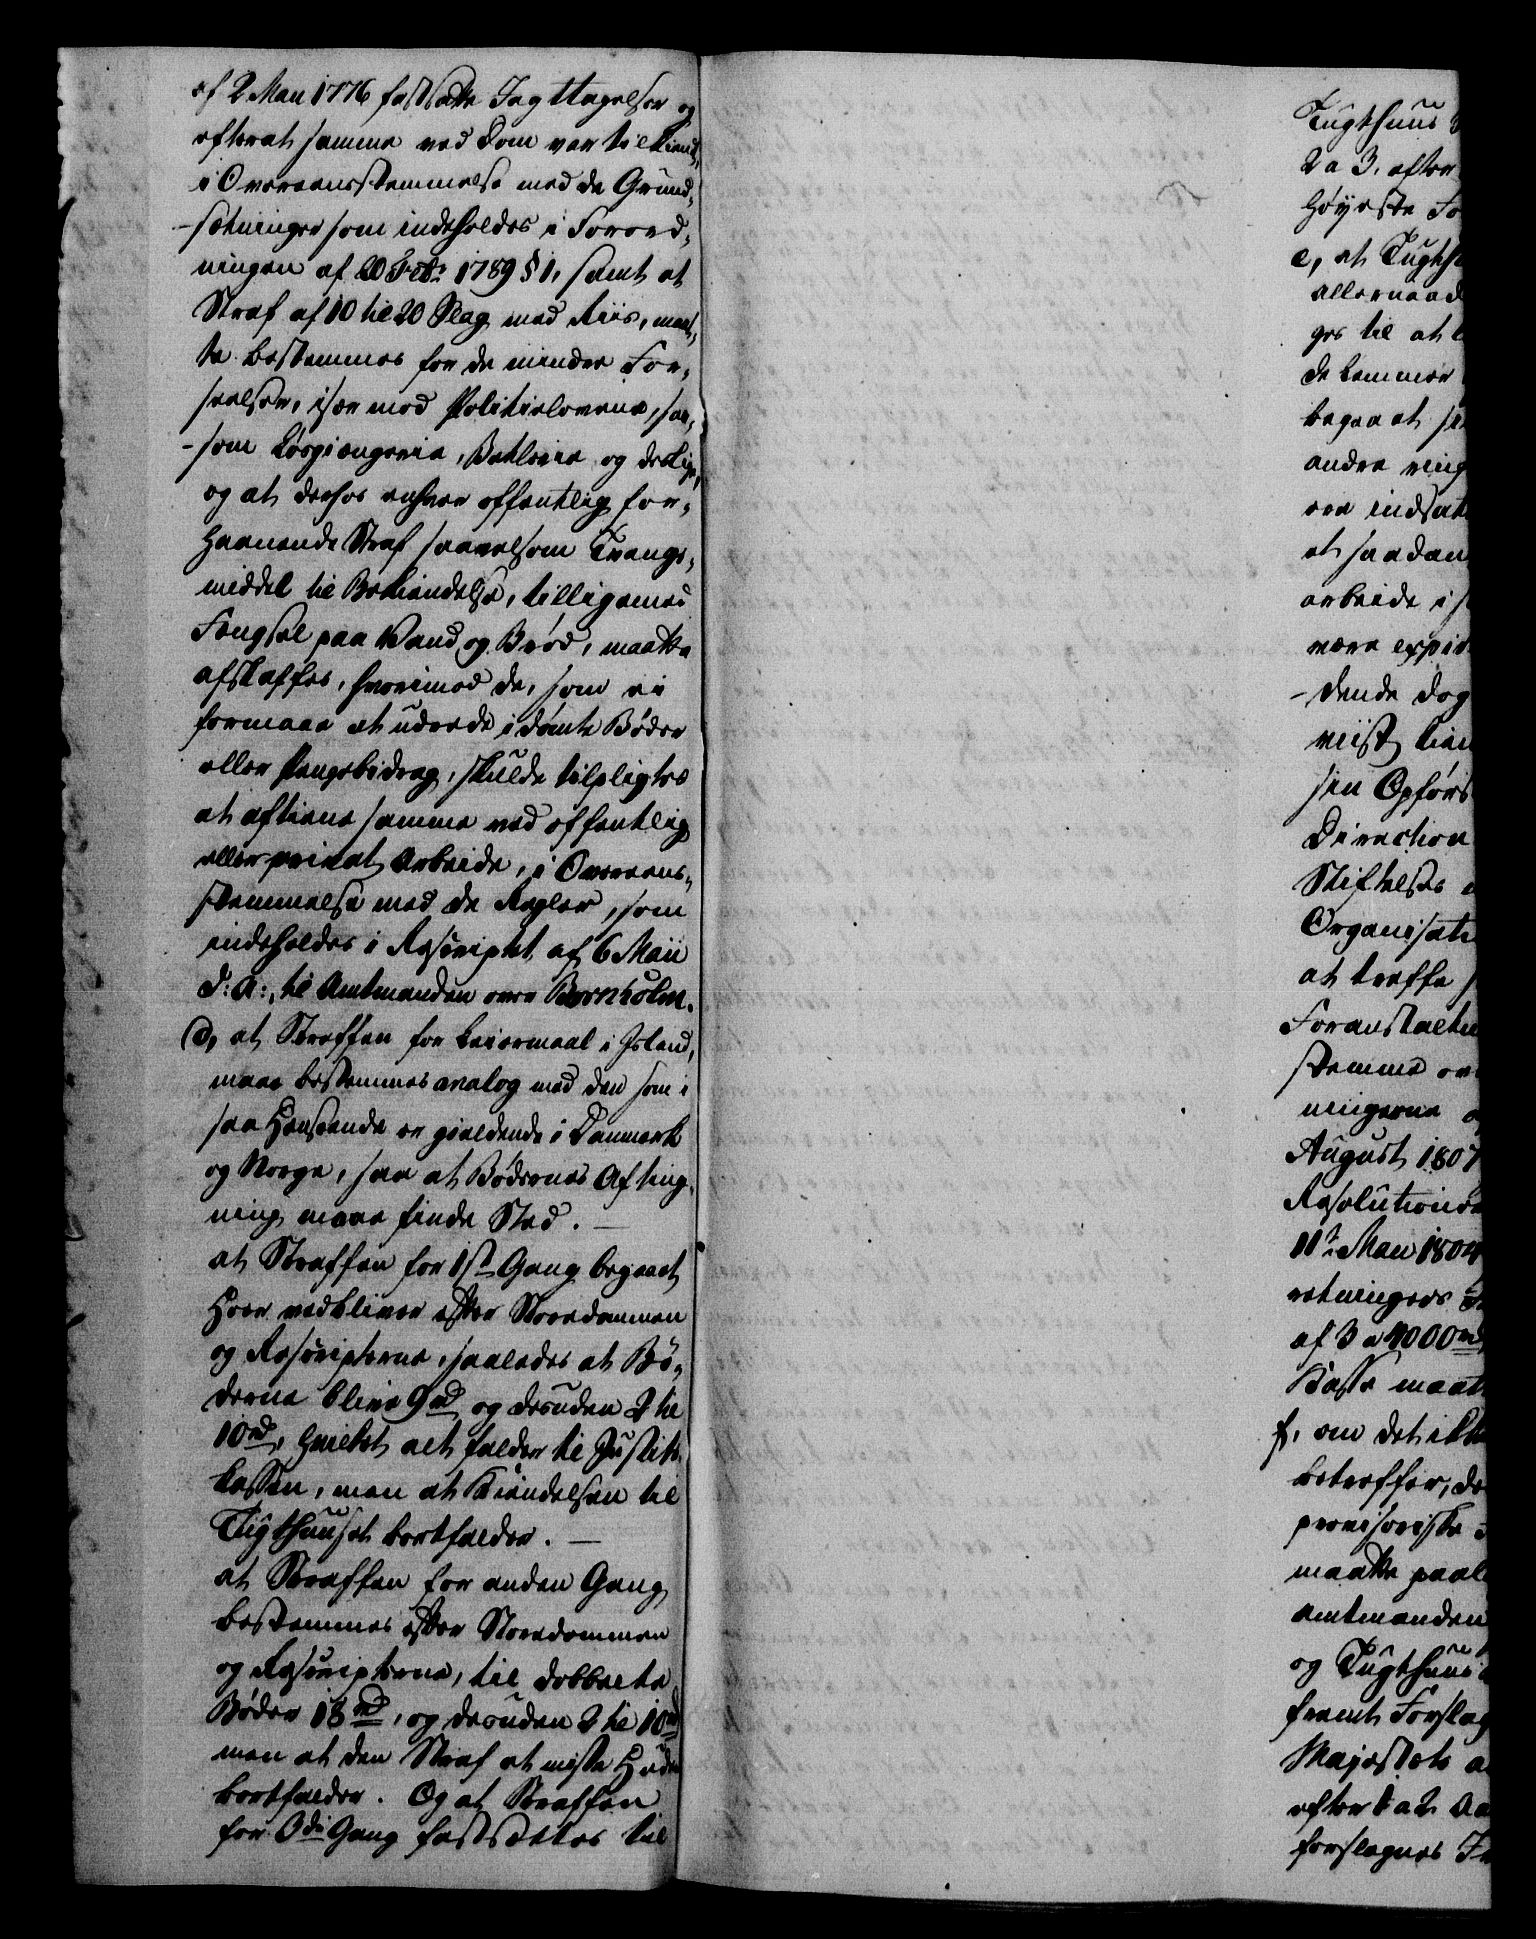 af 2 Mai 1776 fastsatte Iagttagelser og
efterat samme ved Dom var tilkiendt,
i Overeensstemmelse med de Grund-
-sætninger som indeholdes i Forord-
ningen af 20 Febr: 1789 § 1, samt at
Straf af 10 til 20 Slag med Riis, maat-
te bestemmes for de mindre For-
seelser, især mod Politielovene, saa-
-som Løsgiængerie, Betlerie og deslige,
og at derhos enhver offentlig for-
haanende Straf saavelsom Tvangs-
middel til Bekiendelse, tilligemed
Fængsel paa Vand og Brød, maatte
afskaffes, hvorimod de, som ei
formaae at udrede idømte Bøder
eller Pengebidrag, skulde tilpligtes
at aftiene samme ved offentlig
eller privat Arbeide, i Overeens-
stemmelse med de Regler, som
indeholdes i Rescriptet af 6 Maii
d: A:, til Amtmanden over Bornholm.
d, at Straffen for Leiermaal i Island,
maae bestemmes analog med den som i
saa Henseende er gieldende i Danmark
og Norge, saa at Bødernes Afting-
ning maae finde Sted. —
at Straffen for 1ste Gang begaaet
Hoer vedbliver efter Stordommen
og Rescripterne, saaledes at Bø-
derne blive 9 rd og desuden 2 til
10 rd, hvilket alt falder til Justits
kassen, men at Kiendelsen til
Tugthuuset bortfalder. —
at Straffen for anden Gang
bestemmes efter Stordommen
og Rescripterne, til dobbelte
Bøder 18 rd, og desuden 2 til 10 rd
men at den Straf at miste Huden
bortfalder. Og at Straffen
for 3die Gang fastsættes til
Tugthuus
2 a 3. efter
Høyeste Fo
e, at Tugth
allernaad
ges til at
de Lemmer
begaaet
andre ring
ere indsat
at saadan
arbeide i
være exped
-dende dog
viist
sin Opførs
Direction
Stiftelses
Organisati
at treffe
Foranstaltn
stemme ov
ningerne
August 1807
Resolutione
11te Mai 1804
retningers
af 3 a 4000 rd
Kasse maatt
f, om det ikke
betreffer, de
provisoriske
maatte paal
Amtmanden
og Tugthuus
fremt Forslag
Majestæts a
efter 1 a 2 Aa
forslagnes In